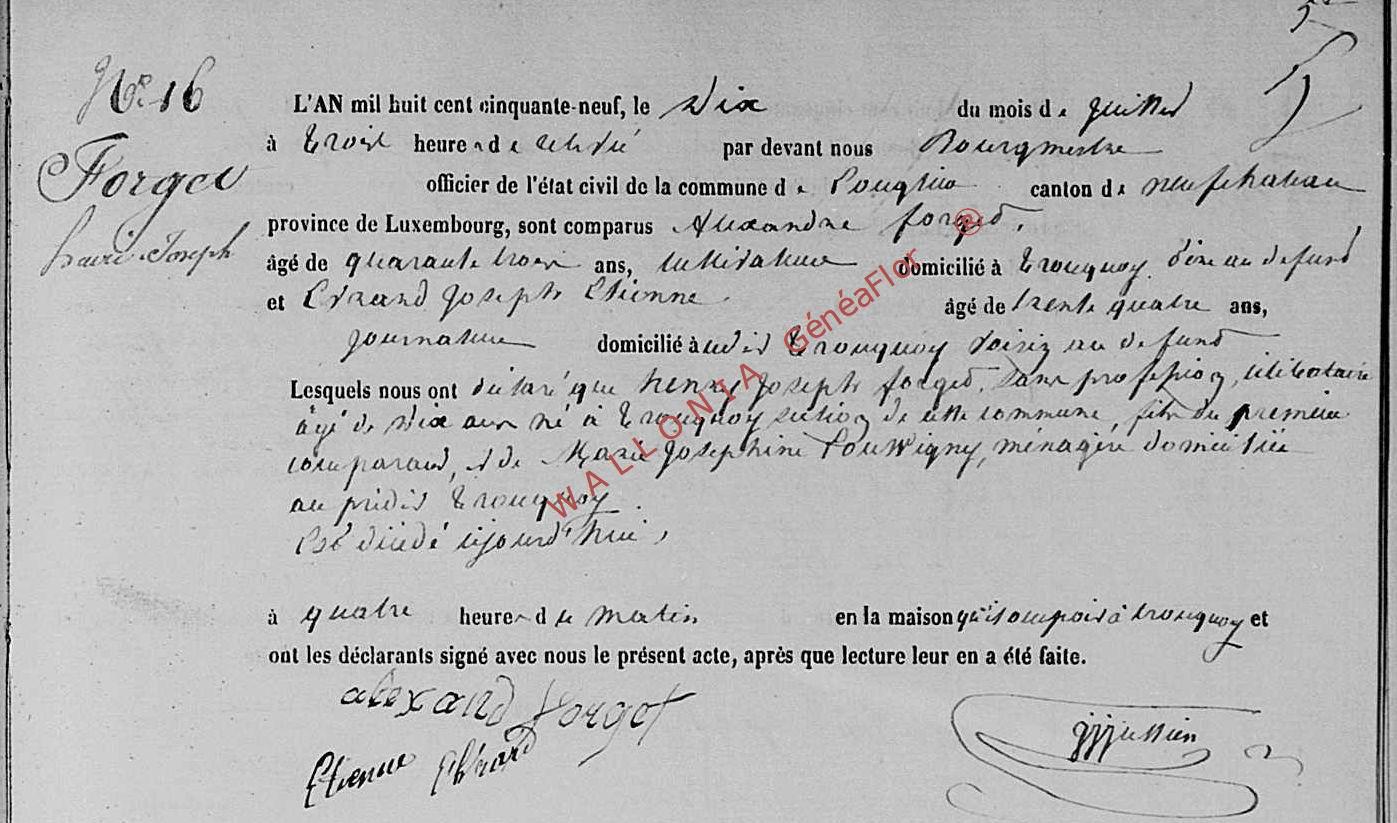 N° 16
Forget
henri Joseph
L'AN mil huit cent cinquante-neuf, le dix du mois de juillet
à trois heures de relevé par devant nous Bourgmestre
officier de l'état civil de la commune de canton de neufchateau
province de Luxembourg, sont comparus Alexandre forget,
âgé de quarante trois ans, cultivateur domicilié à tronquoy père au defunt
et Evrard Joseph Etienne âgé de trente quatre ans,
journalier domicilié à audit tronquoy voisin au defunt
Lesquels nous ont déclaré que henry Joseph forget, sans profession, célibataire
âgé de dix ans né à tronquoy section de cette commune, fils du premier
comparant, et de Marie Josephine Pouwigny, ménagère domiciliée
au prédit tronquoy
Est décédé aujourd'hui,
à quatre heures du matin en la maison qu'il occupoit à tronquoy et
ont les déclarants signé avec nous le présent acte, après que lecture leur en a été faite.
alexand forget
Etienne Evrard
WALLONIA GénéaFlor @